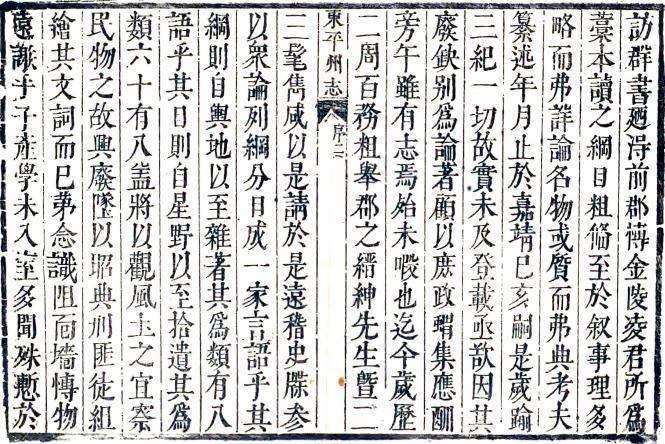 訪群書廼淂前郡博金陵凌君所爲
藁本讀之綱目粗俻至於叙事理多
略而弗詳論名物或質而弗典考夫
纂述年月止於嘉靖巳亥嗣是歲踰
三紀一切故實未及登載亟欲因其
廢缺别爲論著顧以庶政蝟集應酬
旁午雖有志焉始未暇也迄今歲歷
二周百務粗舉郡之縉紳先生曁二
東平州志 序三
三髦雋咸以是請於是遠稽史牒参
以衆論列綱分目成一家言語乎其
綱則自輿地以至雜著其爲類有八
語乎其目則自星野以至拾遺其爲
類六十有八盖將以觀風土之宜察
民物之故興廢墜以昭典刑匪徒組
繪其文詞而已苐念識阻面墻愽物
遠謝乎子產學未入室多聞殊慙於